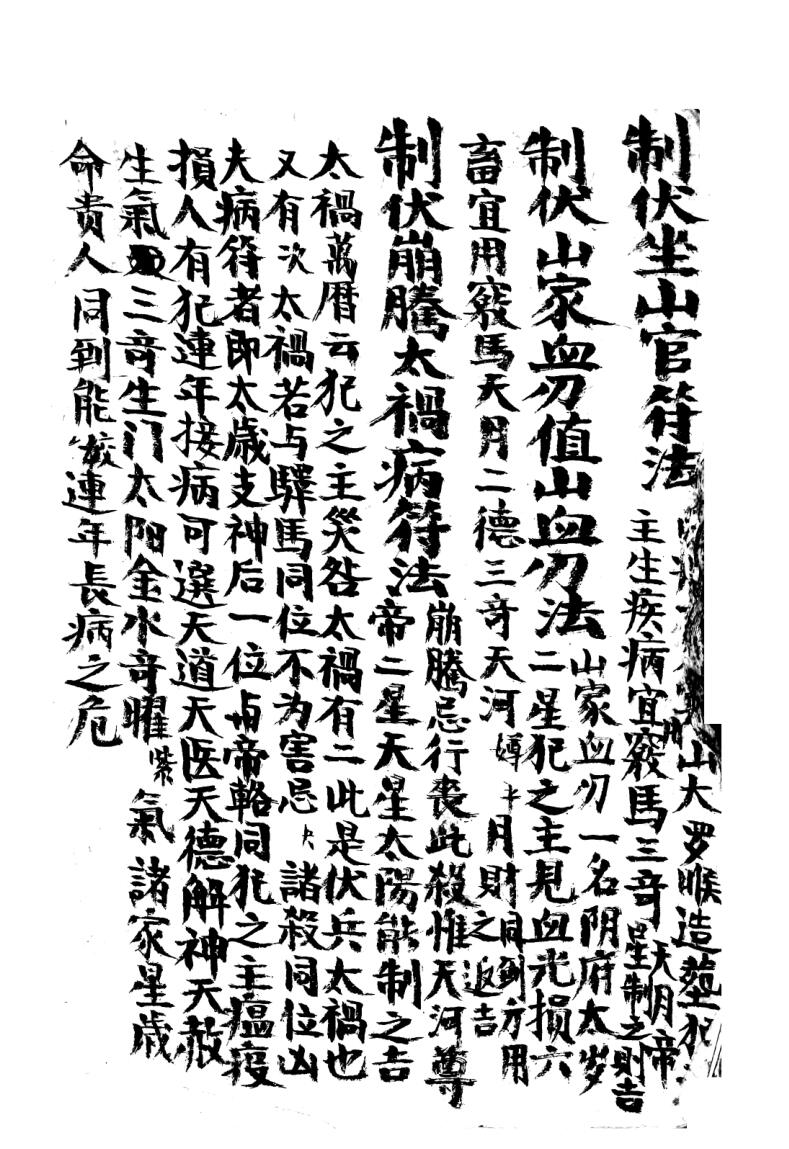 制伏坐山官符法
山大罗睺造塟犯
主生疾病宜用竅馬三竒天月帝星制之則吉
制伏山家血刃值山血刃法
山家血刃一名阴府太岁
二星犯之主見血光損六
畜宜用竅馬天月二德三竒天河
月財之返吉
同到方用
制伏崩騰太禍病符法
崩騰忌行喪此殺惟天河尊
帝二星天星太陽能制之吉
太禍萬厝云犯之主災咎太禍有二此是伏兵太禍也
又有次太禍若与驛馬同位不为害忌諸殺同位凶
夫病符者即太歲支神后一位与帝輅同犯之主瘟疫
損人有犯連年接病可選天道天医天德解神天赦
生氣三竒生门太阳金水竒曜紫氣諸家星歲
命贵人同到能救連年長病之危